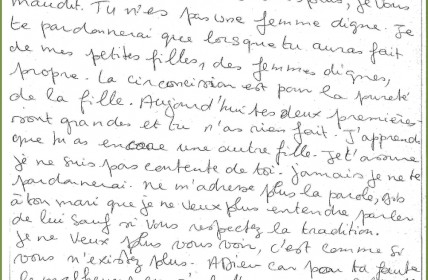 plus, je vous
maudit. Tu n'es pas une femme digne. Je
te pardonnerai que lorsque tu auras fait
de mes petites filles, des femmes dignes,
propre. La circoncision est pour la pureté
de la fille. Aujourd'hui tes deux premières
sont grandes et tu n'as rien fait. J'apprends
que tu as encore une autre fille. Je t'assure
je ne suis pas contente de toi. Jamais je ne te
pardonnerai. Ne m'adresse plus la parole, dis
à ton mari que je ne veux plus entendre parler
de lui sauf si vous respectez la tradition.
Je ne veux plus vous voir, c'est comme si
vous n'existez plus. Adieu car pour ta faute
le malheur